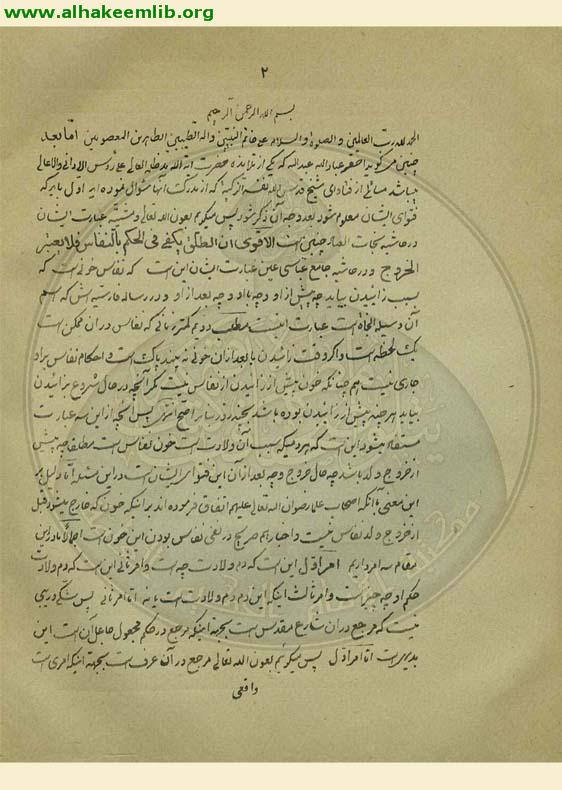 www.alhakeemlib.org
۲
بسم الله الرحمن الرحیم
الحمد لله رب العالمین و الصلوة و السلام علی خاتم النبیین و اله الطیبین الطاهرین المعصومین اما بعد
چنین می کوید احقر عباد الله عبد الله که یکی از تلامذه حضرت ایة الله مد ظله العالی علی رؤس الادانی والاعالی
میباشد مسائلی از فتاوای شیخ قدس الله نفسه الزکیه که از مدرکت آنها سؤال نموده اید اول باید که
فتوای ایشان معلوم شود بعد وجه آن ذکر شود پس میکویم بعون الله تعالی و مشیته عبارت ایشان
در حاشیه نجات العباد چنین است الاقوی ان الطلق یکفی فی الحکم بالنفاس فلا یعتبر
الخروج و در حاشیه جامع عباسی عین عبارت ایشان این است که نفاس خونی است که
بسبب زائیدن بیاید چه پیش از او چه با او چه بعد از او و در رساله فارسیه اش که اسم
آن وسیلة النجاة است عبارت اینست مطلب دوم کمتر زمانی که نفاس در ان ممکن است
یک لحظه است و اکر وقت زائیدن یا بعد از ان خونی نه بیند پاک است و احکام نفاس بر او
جاری نیست هم چنانکه خون پیش از زائیدن از نفاس نیست مکر آنچه در حال شروع بزائیدن
بیاید هر چند پیش از زائیدن بوده باشد بچند روز بنا بر اصح انتهی پس آنچه از این سه عبارت
مستفاد میشود این است که هر دمیکه سبب آن ولادت است خون نفاس است مطلقا چه پیش
از خروج ولد باشد چه حال خروج و چه بعد از ان این فتوای ایشان است در این مسئله اما دلیل بر
این معنی با آنکه اصحاب علماء رضوان الله تعالی علیهم اتفاق فرموده اند بر آنکه خون که خارج میشود قبل
از خروج ولد نفاس نیست و اخبار هم صریح در نفی نفاس بودن این خون است اجمالا ما در این
مقام سه امر داریم امر اول این است که دم ولادت چه است و امر ثانی این است که دم ولادت
حکم او چه چیز است و امر ثالث اینکه این دم دم ولادت است یا نه اما امر ثانی پس شکی و ریبی
نیست که مرجع در ان شارع مقدس است بجهة اینکه مرجع در حکم مجعول جاعل آن است این
بدیهی است اما امر اول پس میکوئیم بعون الله تعالی مرجع در آن عرف است بجهة اینکه امری است
واقعی